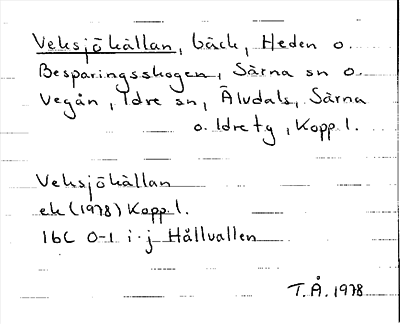 Veksjökällan, bäck, Heden o.
Besparingsskogen, Särna sn o.
Vegån, Idre sn, Älvdals, Särna
o. Idre tg, Kopp l.
Veksjökällan
ek (1978) Kopp l.
16C 0-1 i-j Hållvallen
T.Å. 1978